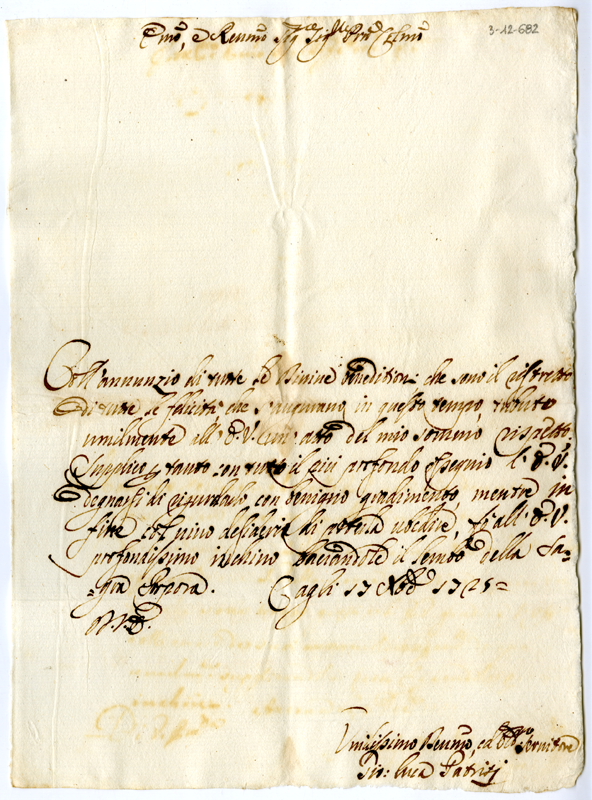 Emo, e Revmo Sig Sig Pne Colmo
3-12-682
Coll'annunzio di tutte le Divine benedition: che sono il ristretto
di tutte le felicità che s'augurano in questo tempo, tributo
umilmente all'E.V. un atto del mio sommo rispetto.
Supplico tanto con tutto il più profondo ossequio l'E.V.
degnarsi di riguardarlo con benigno gradimento, mentre in
fine col pieno desiderio di poterla ubdire, fò all'E.V.
profondissimo inchino baciandole il lembo della Sa-
=gra Porpora. Cagli 17 Xbre 1725=
D.V.E.
Umilissimo Devmo, ed Obbmo Servitore
Gio: Luca Patrizj